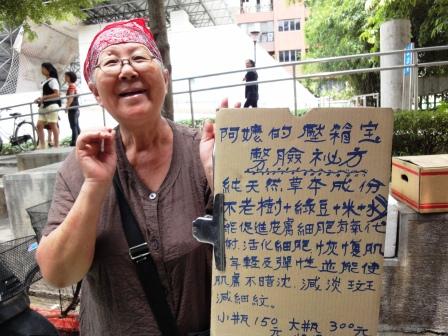 阿嬤的壓箱宝
整臉祕方
純天然草本成份
不老樹+綠豆+米+水
能促進皮膚細胞有氧代
謝.活化細胞恢復肌
膚年輕及彈性並能使
肌膚不暗沈.減淡斑
減細紋.
小瓶150元 大瓶300元